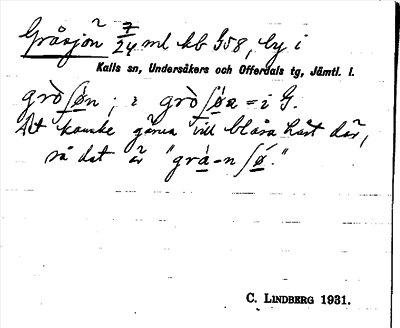 Gråsjön 7/24 ml kb G58, by i
Kalls sn, Undersåkers och Offerdals tg, Jämtl. l.
grò̀ʃøn ; i grò̀ʃøæ = i G.
Att kanske gärna vill blåsa hårt där,
så det är "grå-n ʃø."
C. LINDBERG 1931.